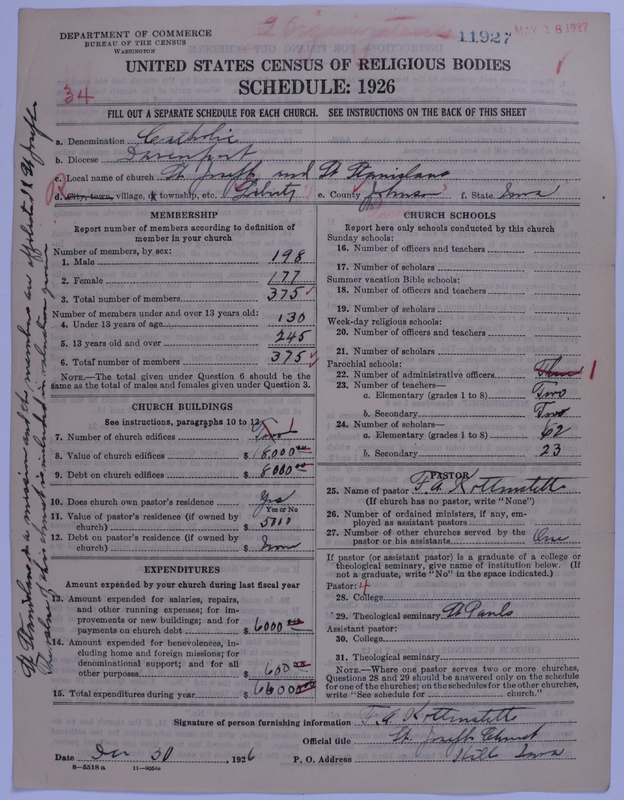 DEPARTMENT OF COMMERCE
BUREAU OF THE CENSUS
WASHINGTON
2 Organizations
11927
MAY 18 1927
UNITED STATES CENSUS OF RELIGIOUS BODIES
SCHEDULE: 1926
34
FILL OUT A SEPARATE SCHEDULE FOR EACH CHURCH. SEE INSTRUCTIONS ON THE BACK OF THIS SHEET
a. Denomination Catholic
b. Diocese Davenport
c. Local name of church St Joseph and St Stanislaus
d. City, town, village, or township, etc. Liberty e. County Johnson f. State Iowa
MEMBERSHIP
Report number of members according to definition of member in your church
Number of members, by sex:
1. Male 198
2. Female 177
3. Total number of members 375
Number of members under and over 13 years old:
4. Under 13 years of age 130
5. 13 years old and over 245
6. Total number of members 375
NOTE.—The total given under Question 6 should be the same as the total of males and females given under Question 3.
CHURCH BUILDINGS
See instructions, paragraphs 10 to 12
7. Number of church edifices Two 1
8. Value of church edifices $ 18000 00
9. Debt on church edifices $ 8000 00
10. Does church own pastor's residence Yes
Yes or No
11. Value of pastor's residence (if owned by church) $ 5000
12. Debt on pastor's residence (if owned by church) $
EXPENDITURES
Amount expended by your church during last fiscal year
13. Amount expended for salaries, repairs, and other running expenses; for improvements or new buildings; and for payments on church debt $ 6000 00
14. Amount expended for benevolences, including home and foreign missions; for denominational support; and for all other purposes $ 600 00
15. Total expenditures during year $ 6600 00
CHURCH SCHOOLS
Report here only schools conducted by this church
Sunday schools:
16. Number of officers and teachers
17. Number of scholars
Summer vacation Bible schools:
18. Number of officers and teachers
19. Number of scholars
Week-day religious schools:
20. Number of officers and teachers
21. Number of scholars
Parochial schools:
22. Number of administrative officers Three 1
23. Number of teachers—
a. Elementary (grades 1 to 8) Two
b. Secondary Two
24. Number of scholars—
a. Elementary (grades 1 to 8) 62
b. Secondary 23
PASTOR
25. Name of pastor F A Kottenstette
(If church has no pastor, write "None")
26. Number of ordained ministers, if any, employed as assistant pastors
27. Number of other churches served by the pastor or his assistants One
If pastor (or assistant pastor) is a graduate of a college or theological seminary, give name of institution below. (If not a graduate, write "No" in the space indicated.)
Pastor: 4
28. College
29. Theological seminary St Pauls
Assistant pastor:
30. College
31. Theological seminary
NOTE.—Where one pastor serves two or more churches, Questions 28 and 29 should be answered only on the schedule for one of the churches; on the schedules for the other churches, write "See schedule for church."
Signature of person furnishing information F A Kottenstette
Official title St Joseph Church
Date Dec 30, 1926 P. O. Address Hills Iowa
8—5518a 11—9054
St Stanislaus is a mission and the members are affiliated to St Joseph